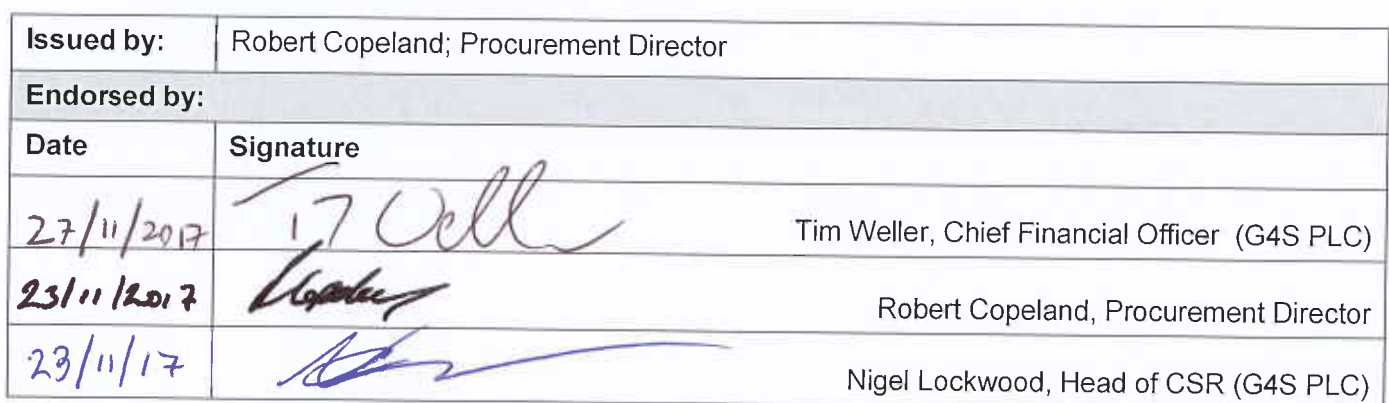 Issued by: Robert Copeland; Procurement Director
Endorsed by:
Date Signature
27/11/2017 Tim Weller, Chief Financial Officer (G4S PLC)
23/11/2017 Robert Copeland, Procurement Director
23/11/17 Nigel Lockwood, Head of CSR (G4S PLC)